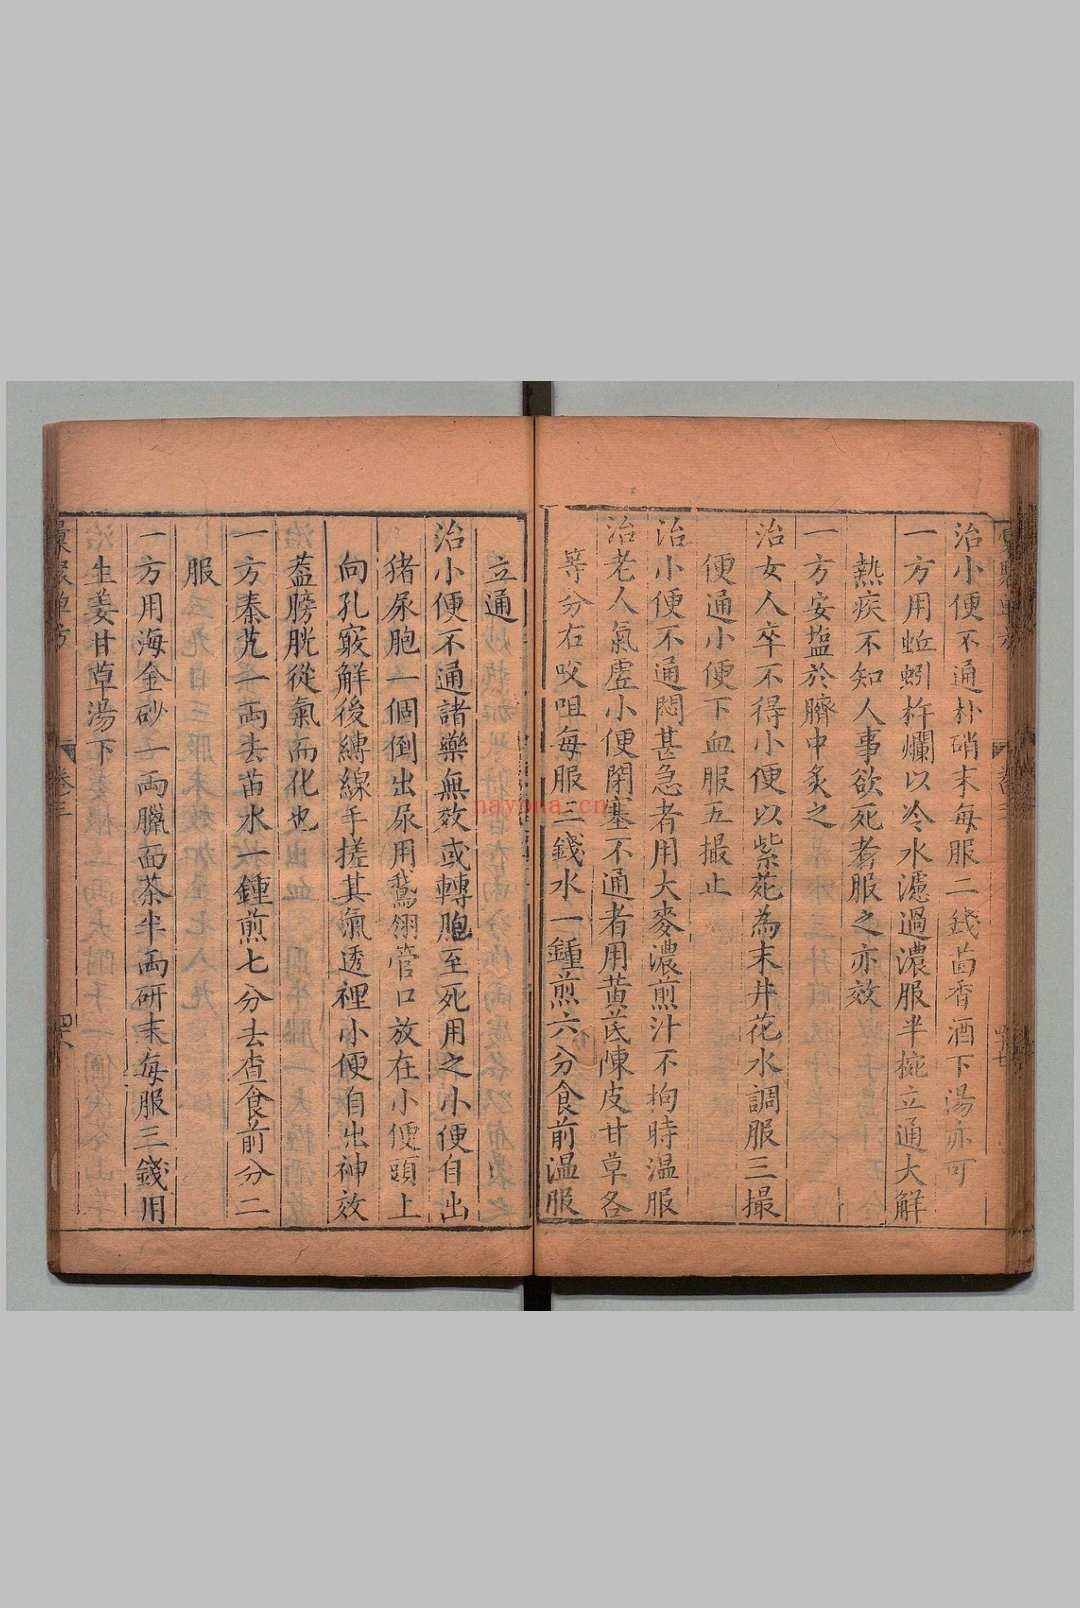 治小便不通朴硝末每服二錢茴香酒下湯亦可
一方用蚯蚓杵爛以冷水濾過濃服半椀立通大解
熱疾不知人事欲死者服之亦效
一方安塩於臍中炙之
治女人卒不得小便以紫菀為末井花水調服三撮
便通小便下血服五撮止
治小便不通悶甚急者用大麥濃煎汁不拘時温服
治老人氣虚小便閉塞不通者用黄芪陳皮甘草各
等分右㕮咀每服三錢水一鍾煎六分食前温服
立通
治小便不通諸藥無效或轉胞至死用之小便自出
猪尿胞一個倒出尿用鵞翎管口放在小便頭上
向孔竅解後縛線手搓其氣透裡小便自出神效
葢膀胱從氣而化也
一方秦艽一両去苗水一鍾煎七分去查食前分二
服
一方用海金砂一両臘面茶半両研末每服三錢用
生姜甘草湯下
卷三
nayona.cn